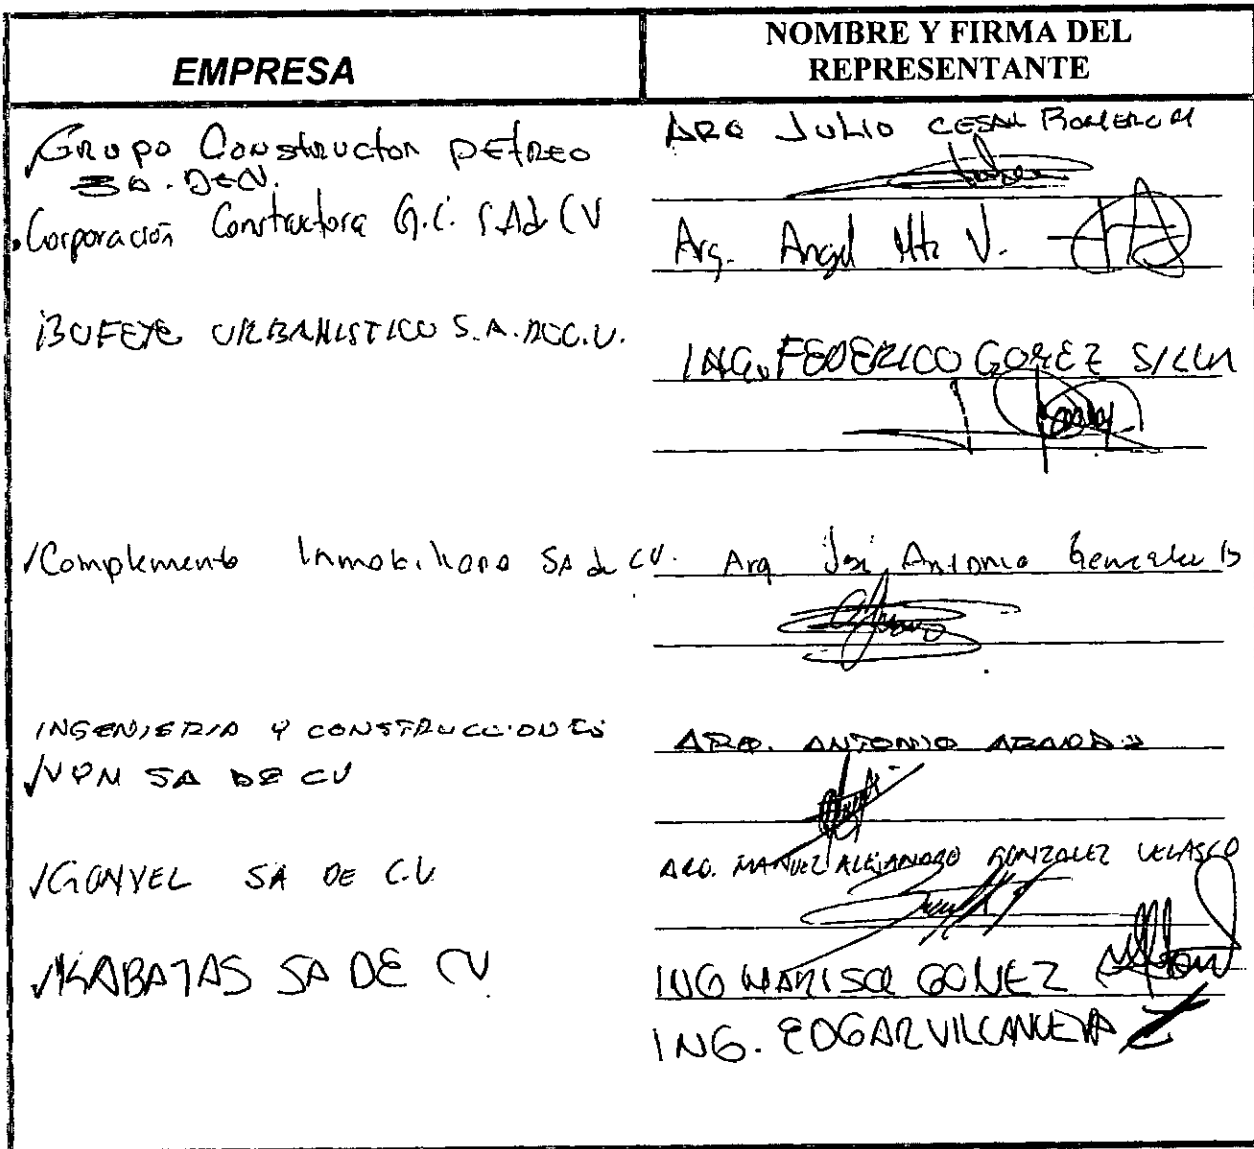 EMPRESA
NOMBRE Y FIRMA DEL
REPRESENTANTE
Grupo Constructor PETREO
SA. DE CV.
ARQ JULIO CESAR ROMERO M
Corporación Constructora G.C. SA de CV
Arq. Angel Mtz V.
BUFETE URBANISTICO S.A. DE C.V.
ING. FEDERICO GOMEZ
Complemento Inmobiliario SA de CV.
Arq José Antonio Gonzalez B
INGENIERIA Y CONSTRUCCIONES
VPM SA DE CV
ARQ. ANTONIO
GONVEL SA DE C.V.
ARQ. MANUEL ALEJANDRO GONZALEZ VELASCO
SA DE CV
ING MARISOL GOMEZ
ING. EDGAR VILLANUEVA